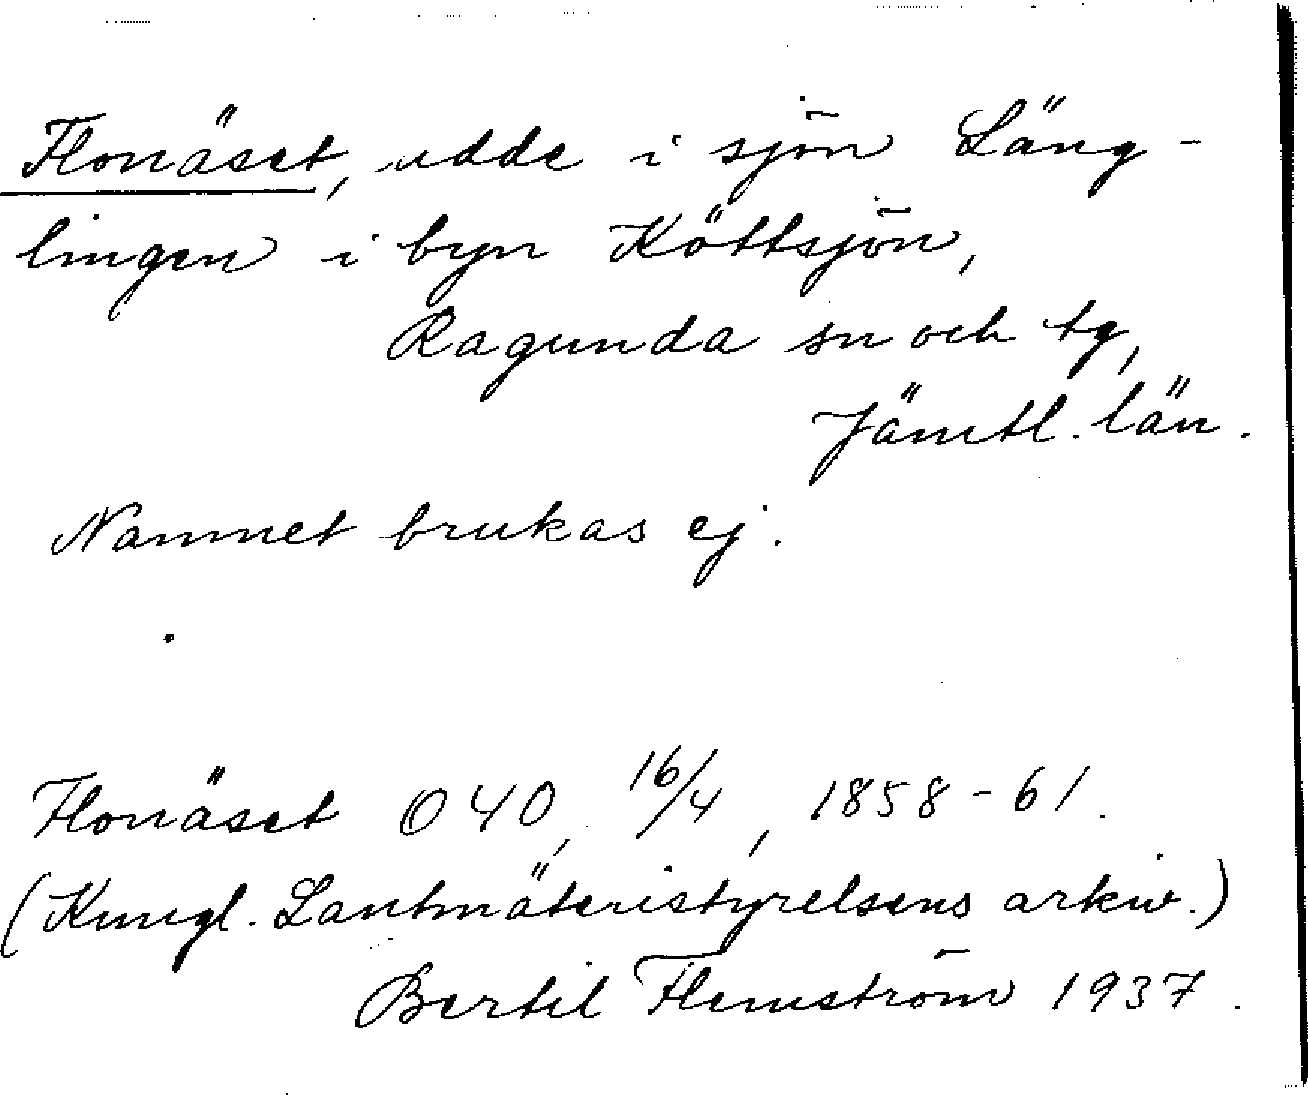 Flonäset, udde i sjön Läng-
lingen i byn Köttsjön,
Ragunda sn och tg,
Jämtl. län.
Namnet brukas ej.
Flonäset O 40, 16/4, 1858-61.
(Kungl. Lantmäteristyrelsens arkiv.)
Bertil Flemström 1937.